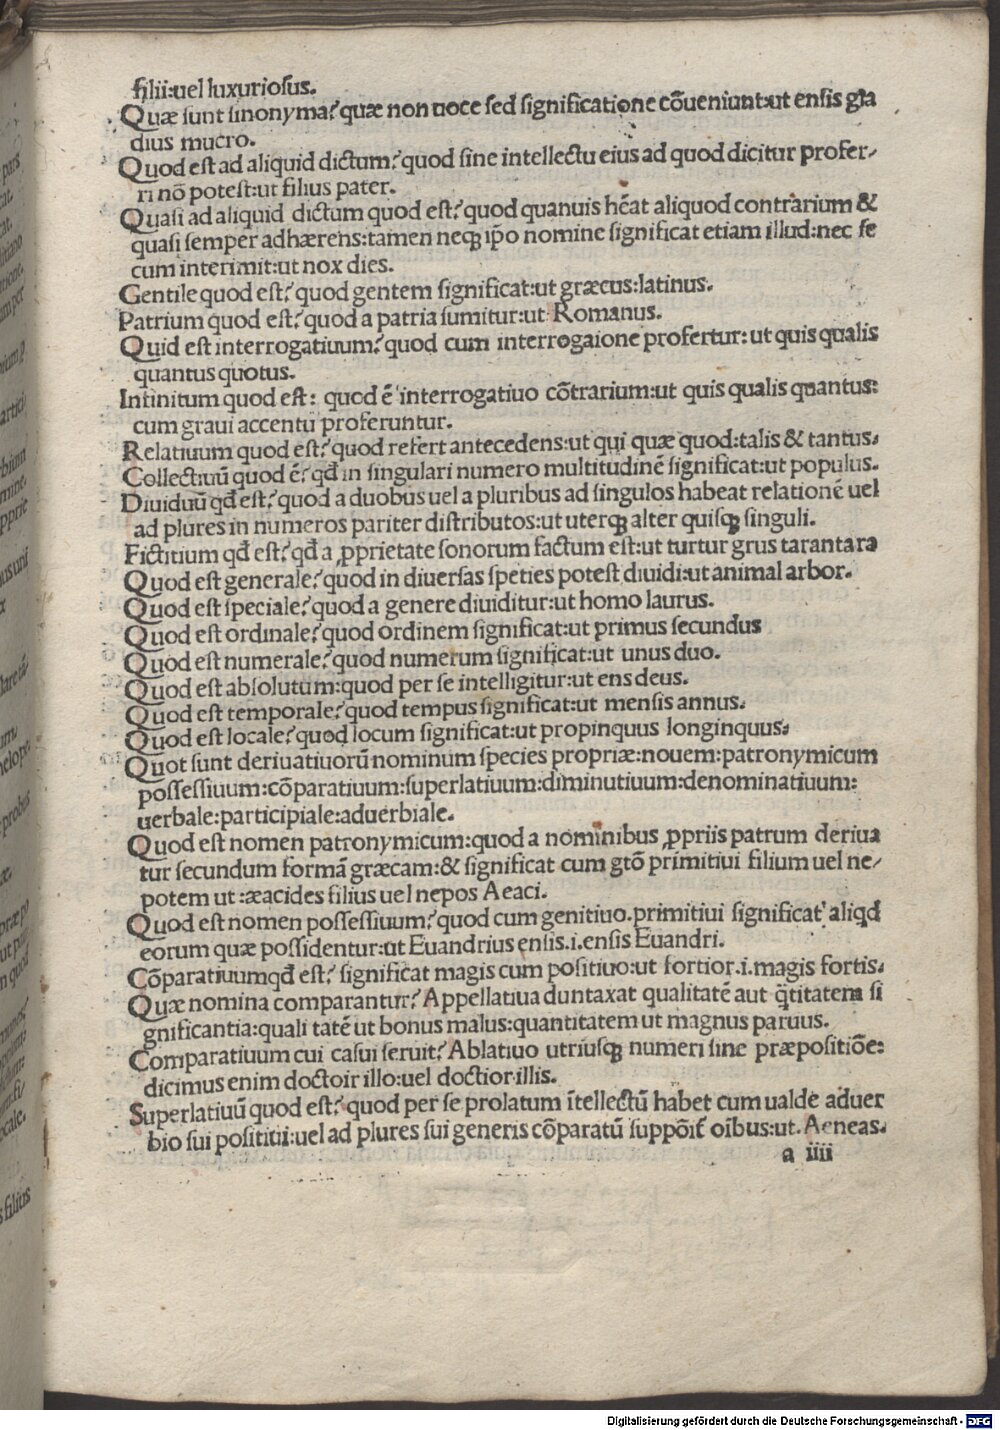 filii:uel luxuriosus.
Quæ sunt sinonyma? quæ non uoce sed significatione cõueniunt:ut ensis gla
dius mucro.
Quod est ad aliquid dictum? quod sine intellectu eius ad quod dicitur profer/
ri nõ potest:ut filius pater.
Quasi ad aliquid dictum quod est? quod quanuis hẽat aliquod contrarium &
quasi semper adhærens:tamen neqꝫ ip̃o nomine significat etiam illud:nec se
cum interimit:ut nox dies.
Gentile quod est? quod gentem significat:ut græcus:latinus.
Patrium quod est? quod a patria sumitur:ut Romanus.
Quid est interrogatiuum? quod cum interrogaione profertur: ut quis qualis
quantus quotus.
Infinitum quod est: quod ẽ interrogatiuo cõtrarium:ut quis qualis quantus:
cum graui accentu proferuntur.
Relatiuum quod est? quod refert antecedens:ut qui quæ quod:talis & tantus.
Collectiuũ quod ẽ? qđ in singulari numero multitudinẽ significat:ut populus.
Diuiduũ qđ est? quod a duobus uel a pluribus ad singulos habeat relationẽ uel
ad plures in numeros pariter distributos:ut uterqꝫ alter quisqꝫ singuli.
Fictitium qđ est? qđ a ꝓprietate sonorum factum est:ut turtur grus tarantara
Quod est generale? quod in diuersas speties potest diuidi:ut animal arbor.
Quod est speciale? quod a genere diuiditur:ut homo laurus.
Quod est ordinale? quod ordinem significat:ut primus secundus
Quod est numerale? quod numerum significat:ut unus duo.
Quod est absolutum:quod per se intelligitur:ut ens deus.
Quod est temporale? quod tempus significat:ut mensis annus.
Quod est locale? quod locum significat:ut propinquus longinquus.
Quot sunt deriuatiuorũ nominum species propriæ:nouem:patronymicum
possessiuum:cõparatiuum:superlatiuum:diminutiuum:denominatiuum:
uerbale:participiale:aduerbiale.
Quod est nomen patronymicum:quod a nominibus ꝓpriis patrum deriua
tur secundum formã græcam:& significat cum gtõ primitiui filium uel ne/
potem ut :æacides filius uel nepos Aeaci.
Quod est nomen possessiuum? quod cum genitiuo.primitiui significat aliqđ
eorum quæ possidentur:ut Euandrius ensis.i.ensis Euandri.
Cõparatiuumqđ est? significat magis cum positiuo:ut fortior.i.magis fortis.
Quæ nomina comparantur? Appellatiua duntaxat qualitatẽ aut q̃titatem si
gnificantia:quali tatẽ ut bonus malus:quantitatem ut magnus paruus.
Comparatiuum cui casui seruit? Ablatiuo utriusqꝫ numeri sine præpositiõe:
dicimus enim doctoir illo:uel doctior illis.
Superlatiuũ quod est? quod per se prolatum ĩtellectũ habet cum ualde aduer
bio sui positiui:uel ad plures sui generis cõparatũ suppõit̃ oĩbus:ut.Aeneas.
a iiii
Digitalisierung gefördert durch die Deutsche Forschungsgemeinschaft - DFG